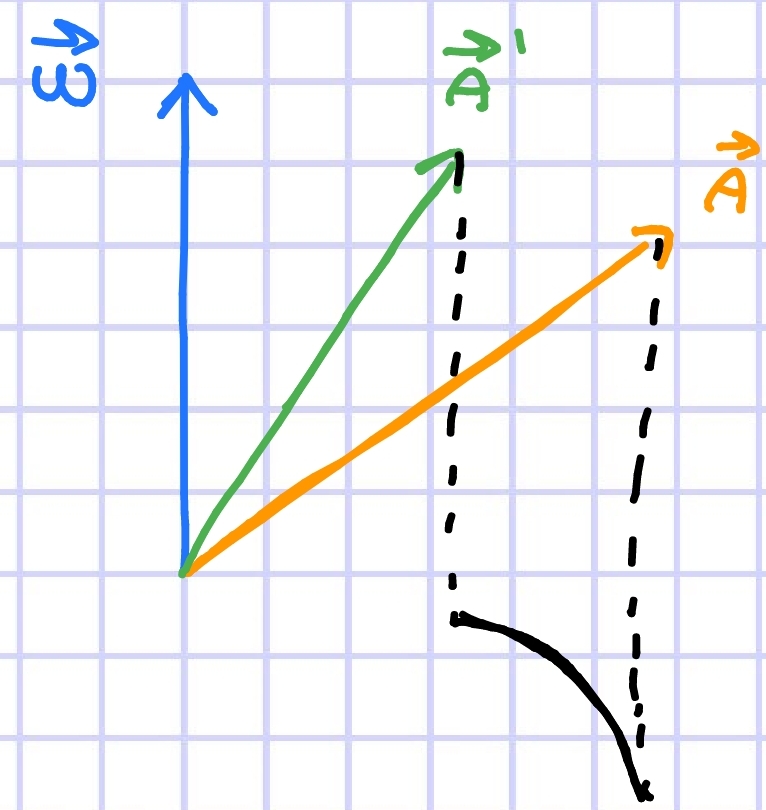 ω⃗
A⃗'
A⃗